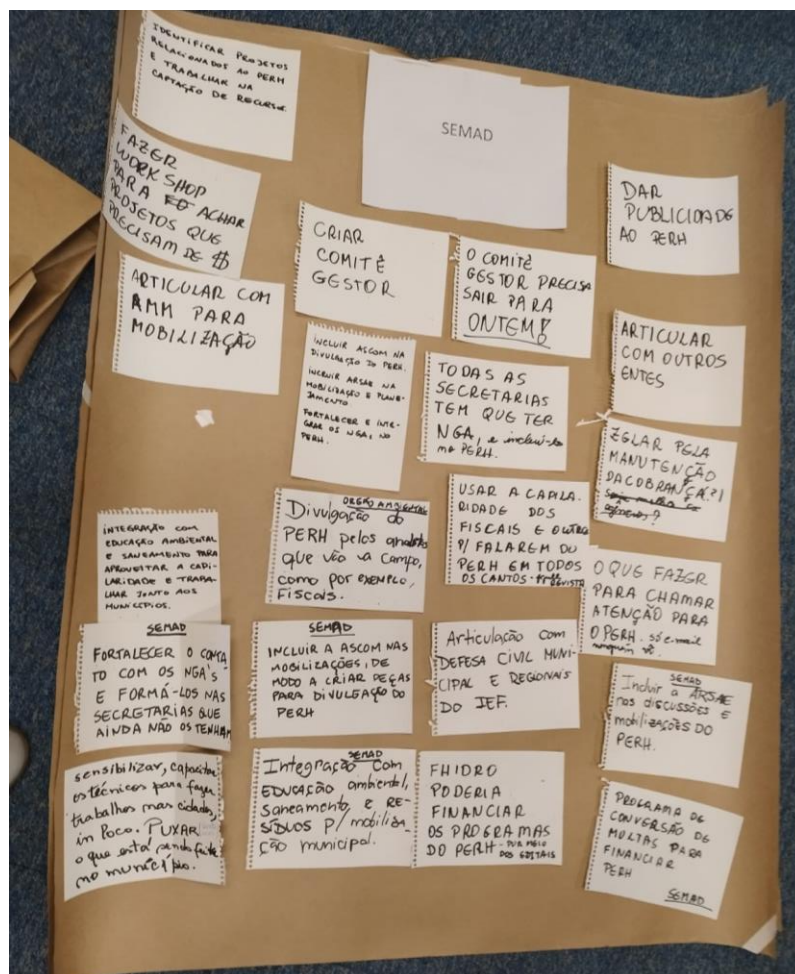 IDENTIFICAR PROJETOS
RELACIONADOS AO PERH
E TRABALHAR NA
CAPTAÇÃO DE RECURSOS.
SEMAD
FAZER
WORKSHOP
PARA ACHAR
PROJETOS QUE
PRECISAM DE $
DAR
PUBLICIDADE
AO PERH
CRIAR
COMITÊ
GESTOR
O COMITÊ
GESTOR PRECISA
SAIR PARA
ONTEM!
ARTICULAR COM
AMM PARA
MOBILIZAÇÃO
ARTICULAR
COM OUTROS
ENTES
INCLUIR ASCOM NA
DIVULGAÇÃO DO PERH.
INCLUIR ARSAE NA
MOBILIZAÇÃO E PLANE-
JAMENTO
FORTALECER E INTE-
GRAR OS NGA, NO
PERH.
TODAS AS
SECRETARIAS
TEM QUE TER
NGA, e incluí-los
no PERH.
ZELAR PELA
MANUTENÇÃO
DA COBRANÇA?!
INTEGRAÇÃO COM
EDUCAÇÃO AMBIENTAL
E SANEAMENTO PARA
APROVEITAR A CAPI-
LARIDADE E TRABA-
LHAR JUNTO AOS
MUNICÍPIOS.
ORGÃO AMBIENTAL
Divulgação do
PERH pelos analistas
que vão a campo,
como por exemplo,
Fiscais.
USAR A CAPILA-
RIDADE DOS
FISCAIS E OUTROS
P/ FALAREM DO
PERH EM TODOS
OS CANTOS.
REVISTA
O QUE FAZER
PARA CHAMAR
ATENÇÃO PARA
O PERH. só e-mail
ninguém vê.
SEMAD
FORTALECER O CONTA
TO COM OS NGA'S
E FORMÁ-LOS NAS
SECRETARIAS QUE
AINDA NÃO OS TENHAM
SEMAD
INCLUIR A ASCOM NAS
MOBILIZAÇÕES, DE
MODO A CRIAR PEÇAS
PARA DIVULGAÇÃO DO
PERH
Articulação com
DEFESA CIVIL MUNI-
CIPAL E REGIONAIS
DO IEF.
SEMAD
Incluir a ARSAE
nas discussões e
mobilizações do
PERH.
sensibilizar, capacitar
os técnicos para fazer
trabalhos nas cidades,
in loco. PUXAR
o que está sendo feito
no município.
SEMAD
Integração com
EDUCAÇÃO ambiental,
Saneamento, e RE-
SÍDUOS P/ mobiliza-
ção municipal.
FHIDRO
PODERIA
FINANCIAR
OS PROGRAMAS
DO PERH - POR MEIO
DOS EDITAIS
PROGRAMA DE
CONVERSÃO DE
MULTAS PARA
FINANCIAR
PERH
SEMAD